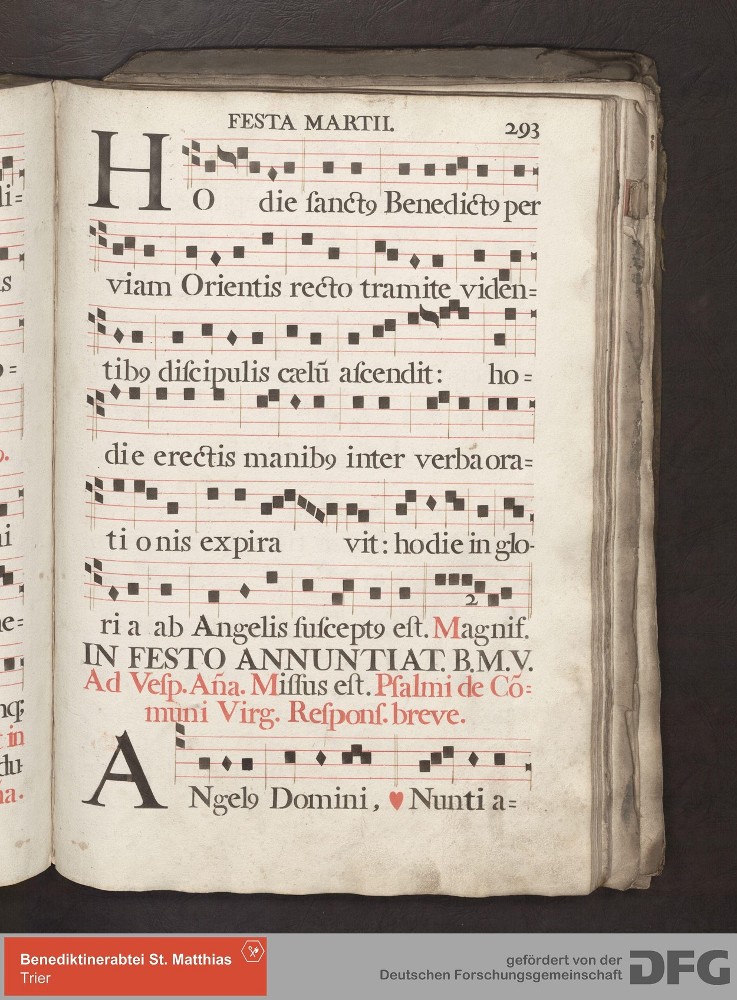 FESTA MARTII. 293
HO die ſanctꝰ Benedictꝰ per
viam Orientis recto tramite viden=
tibꝰ diſcipulis cælū aſcendit: ho=
die erectis manibꝰ inter verba ora=
ti onis expira vit: hodie in glo-
ri a ab Angelis ſuſceptꝰ eſt. Magnif.
IN FESTO ANNUNTIAT. B.M.V.
Ad Veſp. Aña. Miſſus eſt. Pſalmi de Cõ=
muni Virg. Reſponſ. breve.
ANgelꝰ Domini, ♥ Nunti a=
Benediktinerabtei St. Matthias
Trier
gefördert von der
Deutschen Forschungsgemeinschaft
DFG